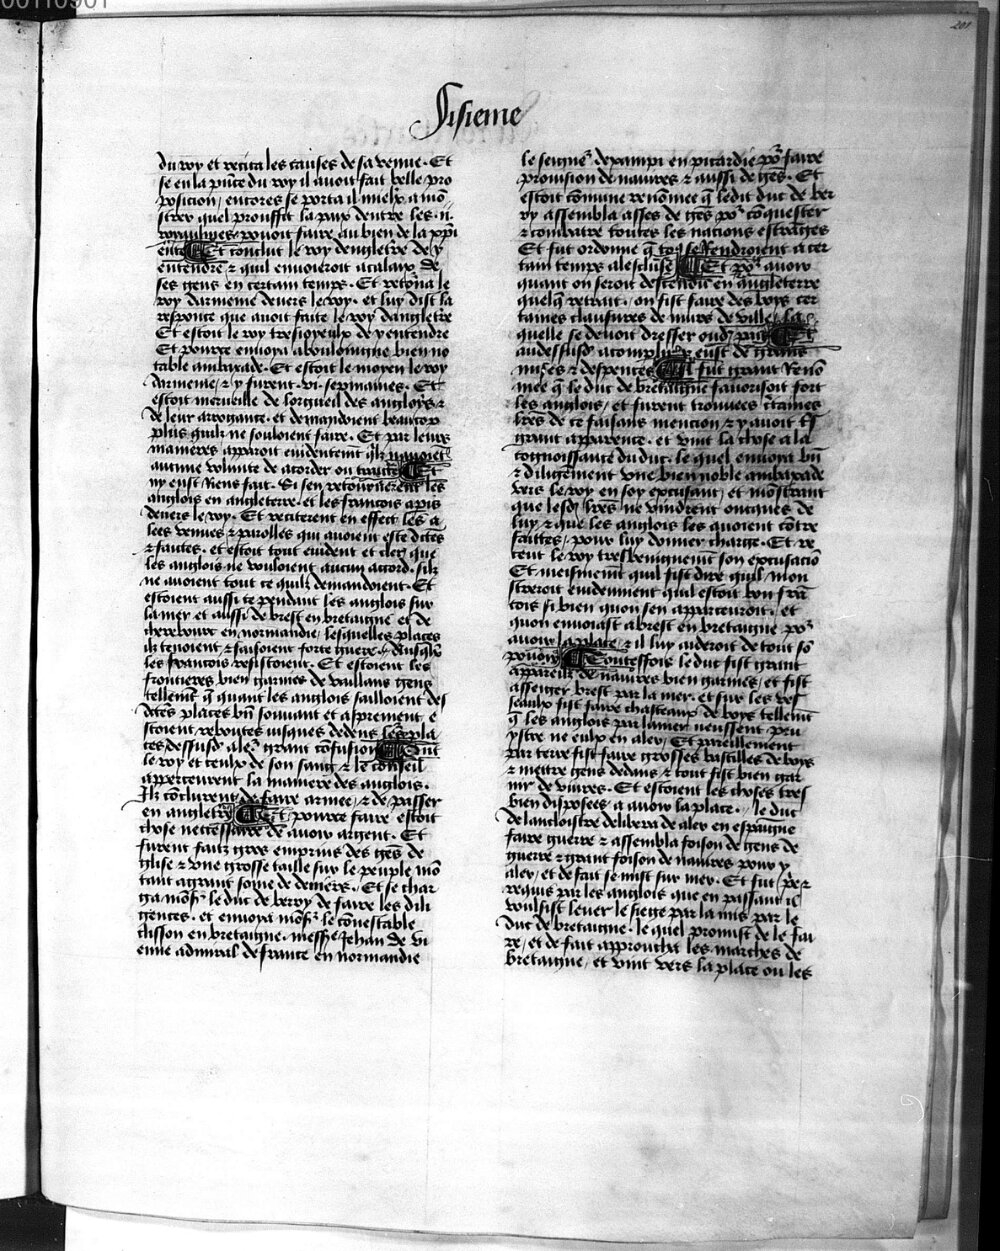 00110901
201
Sisieme
du roy et recita les causes de sa venue. Et
se en la pñce du roy il avoit fait belle pro
position / encores se porta il mielx a mõ
strer quel prouffit la paix dentre les .ii.
royaulmes pouoit faire au bien de la xpi
ente Et conclut le roy dengletre de y
entendre ⁊ quil enuoieroit a calaix de
ses gens en certain temps. Et retorna le
roy darmenie deuers le roy. et luy dist la
response que auoit faite le roy dangletre
Et estoit le roy tresioyeulx de y entendre
Et pource enuoya a bouloingne bien no
table ambaxade. Et estoit le moyen le roy
darmenie / ⁊ y furent .vi. sepmaines. Et
estoit merueille de lorgueil des angloys ⁊
de leur arrogance. et demandoient beaucop
plus quilz ne souloient faire. Et par leurs
manieres apparoit euidenment qlz nauoiẽt
aucune volunte de acorder ou traictẽ Et
ny eust riens fait. Si sen retournerent les
anglois en angleterre. et les francois apis
deuers le roy. Et reciterent en effect les a
lees venues ⁊ parolles qui auoient este dictes
⁊ faites. et estoit tout euident et cler que
les anglois ne vouloient aucun acord. silz
ne auoient tout ce quilz demandoient. Et
estoient aussi ce pendant les anglois sur
la mer et aussi de brest en bretaigne et de
cherebourc en normandie / lesquelles places
ilz tenoient ⁊ faisoient forte guerre. Ausqlz
les francois resistoient. Et estoient les
frontieres bien garnies de vaillans gens
tellemẽt q̃ quant les anglois sailloient des
dictes places bñ souuant et asprement e
stoient reboutes iusques dedens les pla
ces dessusd a leʳ grant confusion Quãt
le roy et ceulx de son sang ⁊ le conseil
apperceurent la maniere des anglois.
Ilz cõclurent de faire armee / ⁊ de passer
en angletre Et pource faire estoit
chose necessaire de auoir argent. Et
furent faiz gros emprũs des gẽs de
glise ⁊ vne grosse taille sur le peuple mõ
tant a grant some de deniers. Et se char
ga mõsʳ le duc de berry de faire les dili
gences. et enuoya mõsʳ le cõnestable
clisson en bretaigne. messʳᵉ Jehan de vi
enne admiral de france en normandie
le seignʳ de sampi en picardie poʳ faire
prouision de nauires ⁊ aussi de gẽs. Et
estoit commune renõmee q̃ ledit duc de ber
ry assembla asses de gẽs poʳ cõquester
⁊ combatre toutes les nations estrãges
Et fut ordonne q̃ to⁹ se rendroient a cer
tain temps a lescluse Et poʳ auoir
quant on seroit descendu en angleterre
quelq̃ retrait / on fist faire des boys cer
taines clausures de murs de ville / la
quelle se deuoit dresser oud pays Et
audessusd acomplir y eust de grans
mises ⁊ despences Il fut grant renõ
mee q̃ le duc de bretaigne fauorisoit fort
les anglois / et furent trouuees certaines
lr̃es de ce faisans mention ⁊ y auoit tʳs
grant apparence. et vint la chose a la
cognoissance du duc. le quel enuoya bñ
⁊ diligenment vne bien noble ambaxade
vers le roy en soy excusant / et monstrant
que lesd lr̃es ne vindrent oncques de
luy / ⁊ que les anglois les auoient cõtre
faittes / pour luy donner charge. Et re
ceut le roy tresbenignemẽt son excusaciõ
Et meismemẽt quil fist dire quil mon
streroit euidenment quil estoit bon frã
cois si bien quon sen apparceuroit. et
quon enuoiast a brest en bretaigne poʳ
auoir la place / ⁊ il luy aideroit de tout sõ
pouoir Toutesfois le duc fist grant
appareil de nauires bien garnies / et fist
assieger brest par la mer. et sur les vес
seaulx fist faire chasteaux de boys tellemẽt
q̃ les anglois par la mer neussent peu
ystre ne eulx en aler / Et pareillement
par terre fist faire grosses bastilles de boys
⁊ mettre gens dedans ⁊ tout fist bien gar
nir de viures. Et estoient les choses tres
bien disposees a auoir la place. le duc
de lancloistre delibera de aler en espaigne
faire guerre ⁊ assembla foison de gens de
guerre ⁊ grant foison de nauires pour y
aler / et de fait se mist sur mer. Et fut pe ⁊
requis par les anglois que en passant il
voulsist leuer le siege par la mis par le
duc de bretaigne. le quel promist de le fai
re / et de fait approucha les marches de
bretaigne / et vint vers la place ou les